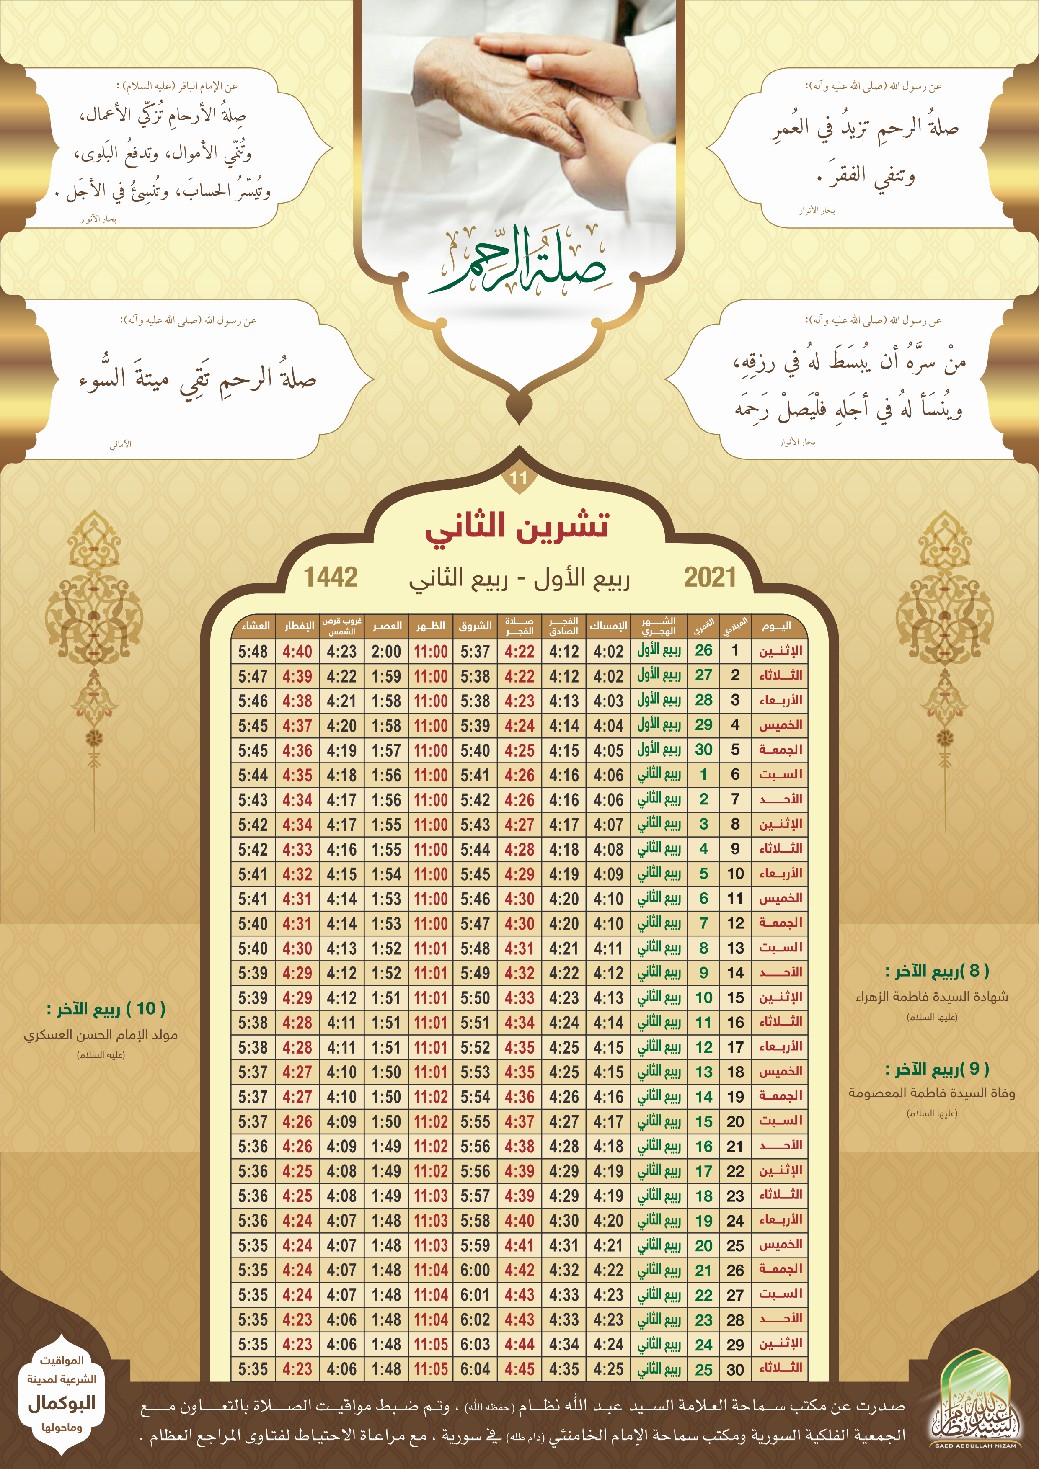 عن رسول الله (صلى الله عليه وآله):
صلةُ الرحمِ تزيدُ في العُمرِ
وتنفي الفقرَ .
بحار الأنوار
عن الإمام الباقر (عليه السلام) :
صِلةُ الأرحامِ تُزكّي الأعمال،
وتُنمّي الأموال، وتدفعُ البَلوى،
وتُيسّرُ الحسابَ، وتُنسِئُ في الأجَل .
بحار الأنوار
صلة الرحم
عن رسول الله (صلى الله عليه وآله):
منْ سرَّهُ أن يُبسَطَ لهُ في رزقِهِ،
ويُنسَأ لهُ في أجَلهِ فلْيَصلْ رَحِمَه
بحار الأنوار
عن رسول الله (صلى الله عليه وآله):
صلةُ الرحمِ تَقِي ميتةَ السُّوء
الأمالي
11
تشرين الثاني
2021 ربيع الأول - ربيع الثاني 1442
اليوم الميلادي القمري الشهر الهجري الإمساك الفجر الصادق صلاة الفجر الشروق الظهر العصر غروب قرص الشمس الإفطار العشاء
الإثنين 1 26 ربيع الأول 4:02 4:12 4:22 5:37 11:00 2:00 4:23 4:40 5:48
الثلاثاء 2 27 ربيع الأول 4:02 4:12 4:22 5:38 11:00 1:59 4:22 4:39 5:47
الأربعاء 3 28 ربيع الأول 4:03 4:13 4:23 5:38 11:00 1:58 4:21 4:38 5:46
الخميس 4 29 ربيع الأول 4:04 4:14 4:24 5:39 11:00 1:58 4:20 4:37 5:45
الجمعة 5 30 ربيع الأول 4:05 4:15 4:25 5:40 11:00 1:57 4:19 4:36 5:45
السبت 6 1 ربيع الثاني 4:06 4:16 4:26 5:41 11:00 1:56 4:18 4:35 5:44
الأحد 7 2 ربيع الثاني 4:06 4:16 4:26 5:42 11:00 1:56 4:17 4:34 5:43
الإثنين 8 3 ربيع الثاني 4:07 4:17 4:27 5:43 11:00 1:55 4:17 4:34 5:42
الثلاثاء 9 4 ربيع الثاني 4:08 4:18 4:28 5:44 11:00 1:55 4:16 4:33 5:42
الأربعاء 10 5 ربيع الثاني 4:09 4:19 4:29 5:45 11:00 1:54 4:15 4:32 5:41
الخميس 11 6 ربيع الثاني 4:10 4:20 4:30 5:46 11:00 1:53 4:14 4:31 5:41
الجمعة 12 7 ربيع الثاني 4:10 4:20 4:30 5:47 11:00 1:53 4:14 4:31 5:40
السبت 13 8 ربيع الثاني 4:11 4:21 4:31 5:48 11:01 1:52 4:13 4:30 5:40
الأحد 14 9 ربيع الثاني 4:12 4:22 4:32 5:49 11:01 1:52 4:12 4:29 5:39
الإثنين 15 10 ربيع الثاني 4:13 4:23 4:33 5:50 11:01 1:51 4:12 4:29 5:39
الثلاثاء 16 11 ربيع الثاني 4:14 4:24 4:34 5:51 11:01 1:51 4:11 4:28 5:38
الأربعاء 17 12 ربيع الثاني 4:15 4:25 4:35 5:52 11:01 1:51 4:11 4:28 5:38
الخميس 18 13 ربيع الثاني 4:15 4:25 4:35 5:53 11:01 1:50 4:10 4:27 5:37
الجمعة 19 14 ربيع الثاني 4:16 4:26 4:36 5:54 11:02 1:50 4:10 4:27 5:37
السبت 20 15 ربيع الثاني 4:17 4:27 4:37 5:55 11:02 1:50 4:09 4:26 5:37
الأحد 21 16 ربيع الثاني 4:18 4:28 4:38 5:56 11:02 1:49 4:09 4:26 5:36
الإثنين 22 17 ربيع الثاني 4:19 4:29 4:39 5:56 11:02 1:49 4:08 4:25 5:36
الثلاثاء 23 18 ربيع الثاني 4:19 4:29 4:39 5:57 11:03 1:49 4:08 4:25 5:36
الأربعاء 24 19 ربيع الثاني 4:20 4:30 4:40 5:58 11:03 1:48 4:07 4:24 5:36
الخميس 25 20 ربيع الثاني 4:21 4:31 4:41 5:59 11:03 1:48 4:07 4:24 5:35
الجمعة 26 21 ربيع الثاني 4:22 4:32 4:42 6:00 11:04 1:48 4:07 4:24 5:35
السبت 27 22 ربيع الثاني 4:23 4:33 4:43 6:01 11:04 1:48 4:07 4:24 5:35
الأحد 28 23 ربيع الثاني 4:23 4:33 4:43 6:02 11:04 1:48 4:06 4:23 5:35
الإثنين 29 24 ربيع الثاني 4:24 4:34 4:44 6:03 11:05 1:48 4:06 4:23 5:35
الثلاثاء 30 25 ربيع الثاني 4:25 4:35 4:45 6:04 11:05 1:48 4:06 4:23 5:35
( 8 )ربيع الآخر :
شهادة السيدة فاطمة الزهراء
(عليها السلام)
( 9 )ربيع الآخر :
وفاة السيدة فاطمة المعصومة
(عليها السلام)
( 10 ) ربيع الآخر :
مولد الإمام الحسن العسكري
(عليه السلام)
صدرت عن مكتب سماحة العلامة السيد عبد الله نظام (حفظه الله) ، وتم ضبط مواقيت الصلاة بالتعاون مع
الجمعية الفلكية السورية ومكتب سماحة الإمام الخامنئي (دام ظله) في سورية ، مع مراعاة الاحتياط لفتاوى المراجع العظام .
المواقيت
الشرعية لمدينة
البوكمال
وماحولها
السيد عبد الله نظام
SAED ABDULLAH NIZAM